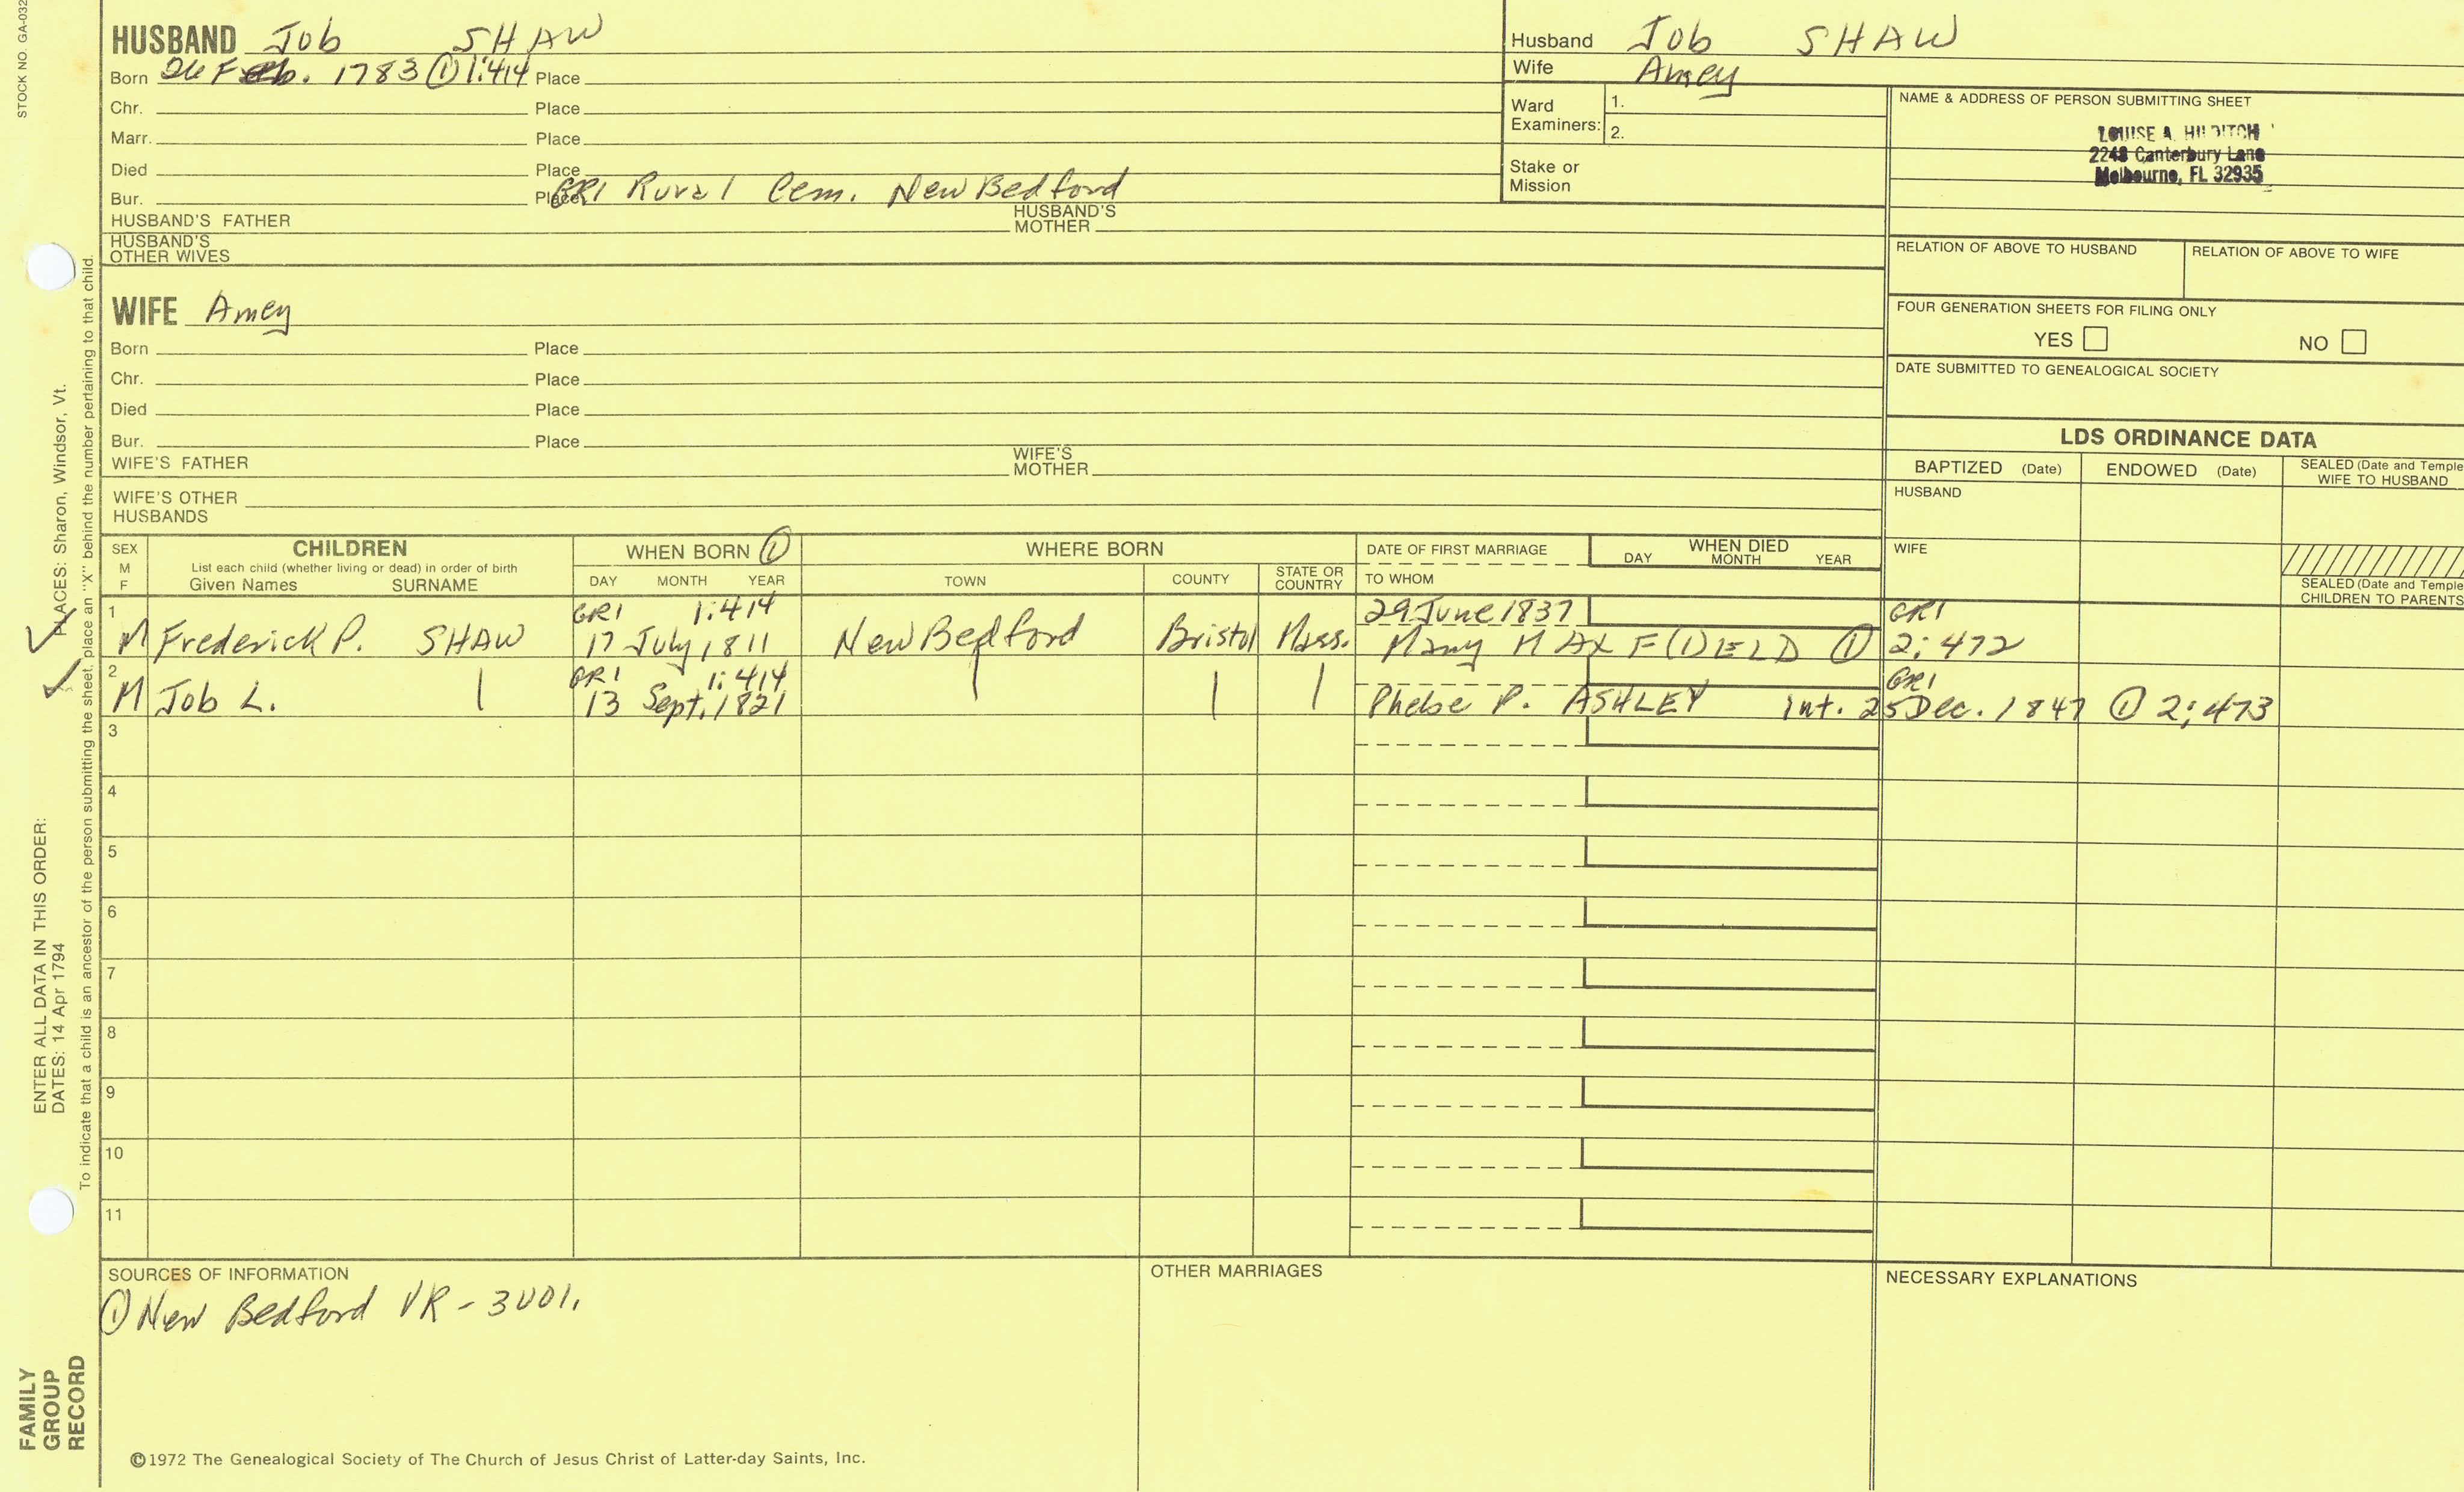 STOCK NO. GA-032
HUSBAND Job SHAW
Born 26 Feb. 1783 ① 1:414 Place
Chr. Place
Marr. Place
Died Place
Bur. Place GR1 Rural Cem. New Bedford
HUSBAND'S FATHER HUSBAND'S MOTHER
HUSBAND'S OTHER WIVES
Husband Job SHAW
Wife Amey
Ward Examiners: 1.
2.
Stake or Mission
NAME & ADDRESS OF PERSON SUBMITTING SHEET
LOUISE A. HILDITCH
2248 Canterbury Lane
Melbourne, FL 32935
RELATION OF ABOVE TO HUSBAND RELATION OF ABOVE TO WIFE
FOUR GENERATION SHEETS FOR FILING ONLY
YES NO
DATE SUBMITTED TO GENEALOGICAL SOCIETY
WIFE Amey
Born Place
Chr. Place
Died Place
Bur. Place
WIFE'S FATHER WIFE'S MOTHER
WIFE'S OTHER HUSBANDS
LDS ORDINANCE DATA
BAPTIZED (Date) ENDOWED (Date) SEALED (Date and Temple
WIFE TO HUSBAND
HUSBAND
WIFE
SEALED (Date and Temple
CHILDREN TO PARENTS
SEX
M
F
CHILDREN
List each child (whether living or dead) in order of birth
Given Names SURNAME
WHEN BORN ①
DAY MONTH YEAR
WHERE BORN
TOWN COUNTY STATE OR COUNTRY
DATE OF FIRST MARRIAGE
TO WHOM
WHEN DIED
DAY MONTH YEAR
1 GR1 1:414 29 June 1837 GR1
M Frederick P. SHAW 17 July 1811 New Bedford Bristol Mass. Mary MAXF(I)ELD ① 2:472
2 GR1 1:414 GR1
M Job L. | 13 Sept. 1821 | | | Phebe P. ASHLEY Int. 25 Dec. 1847 ① 2:473
3
4
5
6
7
8
9
10
11
SOURCES OF INFORMATION
① New Bedford VR - 3 Vol.
OTHER MARRIAGES
NECESSARY EXPLANATIONS
©1972 The Genealogical Society of The Church of Jesus Christ of Latter-day Saints, Inc.
FAMILY
GROUP
RECORD
ENTER ALL DATA IN THIS ORDER:
DATES: 14 Apr 1794 PLACES: Sharon, Windsor, Vt.
To indicate that a child is an ancestor of the person submitting the sheet, place an "X" behind the number pertaining to that child.